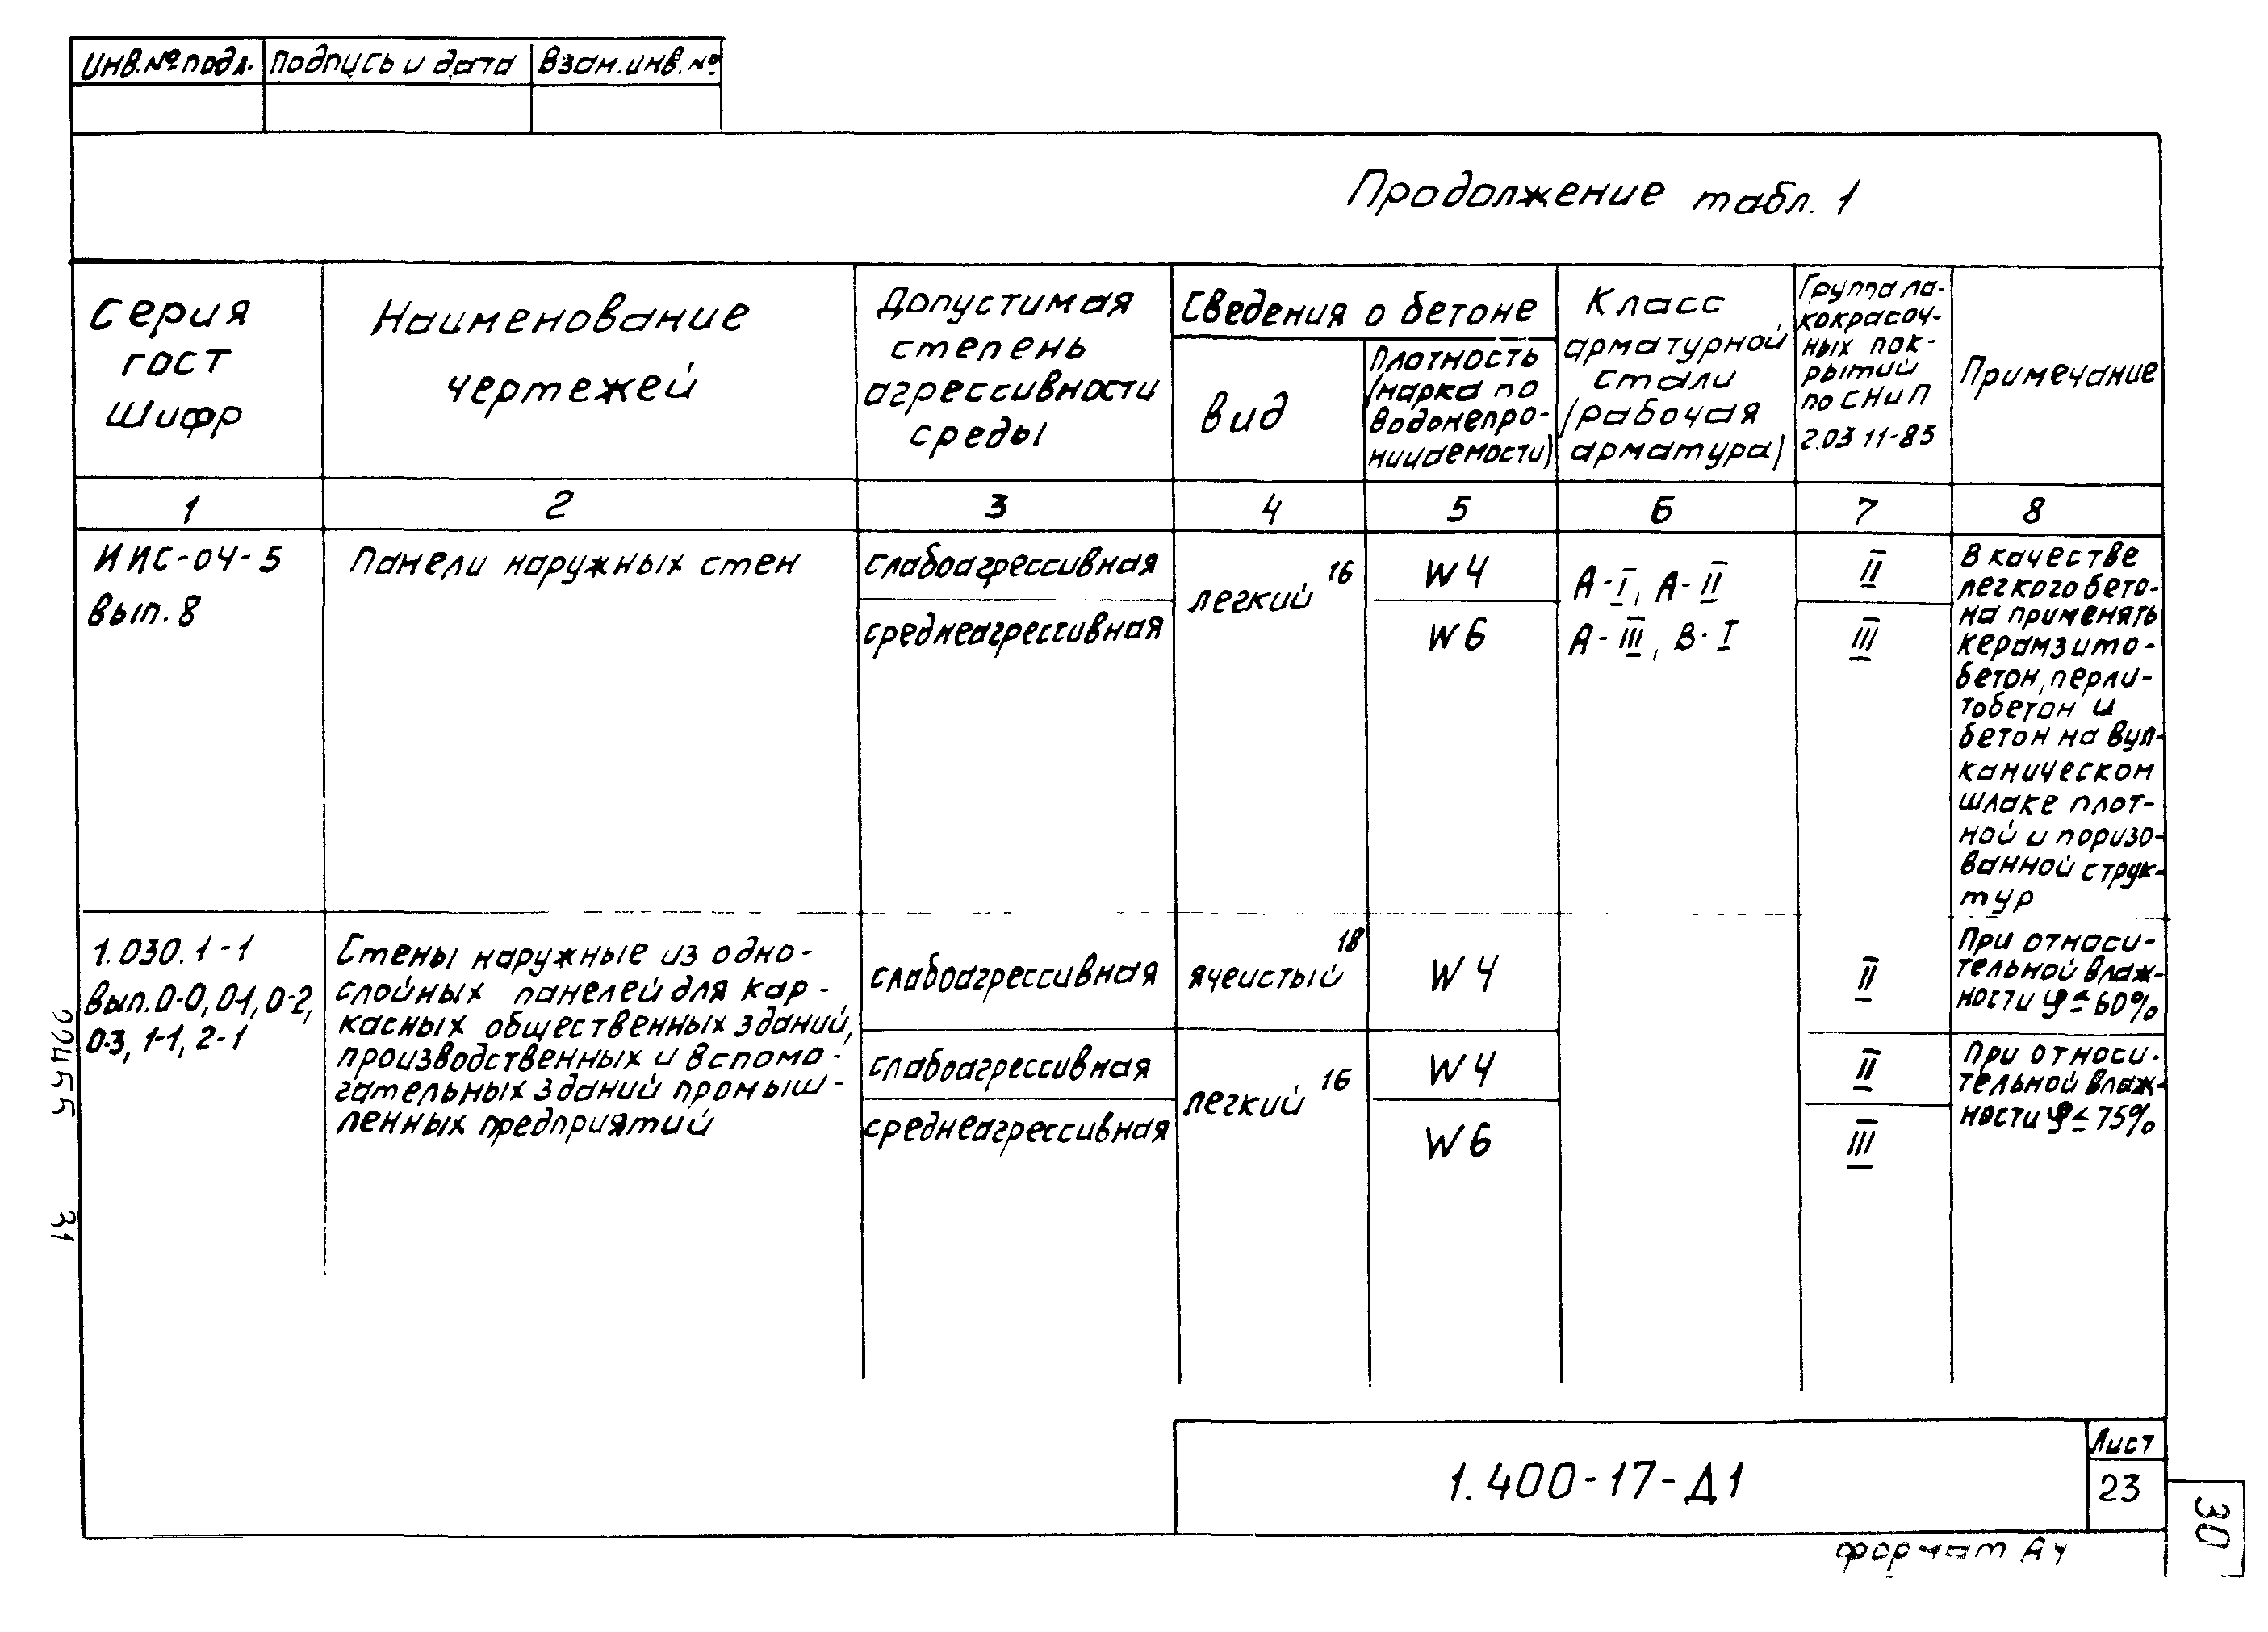 Инв.№ подл. Подпись и дата Взам.инв.№
Продолжение табл. 1
Серия
гост
Шифр
Наименование
чертежей
Допустимая
степень
агрессивности
среды
Сведения о бетоне
вид
Плотность
(марка по
водонепро-
ницаемости)
Класс
арматурной
стали
(рабочая
арматура)
Группа ла-
кокрасоч-
ных пок-
рытий
по СНиП
2.03 11-85
Примечание
1 2 3 4 5 6 7 8
ИИС-04-5
вып. 8
Панели наружных стен
слабоагрессивная
среднеагрессивная
легкий 16
W4
W6
А-I, А-II
А-III, В-I
II
III
В качестве
легкого бето-
на применять
керамзито-
бетон, перли-
тобетон и
бетон на вул-
каническом
шлаке плот-
ной и поризо-
ванной струк-
тур
1.030.1-1
вып.0-0, 0-1, 0-2,
0-3, 1-1, 2-1
Стены наружные из одно-
слойных панелей для кар-
касных общественных зданий,
производственных и вспомо-
гательных зданий промыш-
ленных предприятий
слабоагрессивная
ячеистый 18
W4
II
При относи-
тельной влаж-
ности φ ≤ 60%
слабоагрессивная
среднеагрессивная
легкий 16
W4
W6
II
III
При относи-
тельной влаж-
ности φ ≤ 75%
22455 31
1.400-17-Д1
Лист
23
30
формат А4